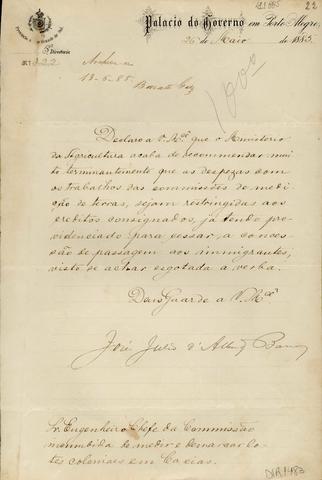 22
Palacio do Governo em Porto Alegre,
26 de Maio de 1885
2ª Directoria
Nº 222
Archive-se
13-6-85
Declaro a V. Mcê que o Ministerio
da Agricultura acaba de recommendar mui
to terminantemente que as despezas com
os trabalhos das commissões de medi
ção de terras, sejam restringidas aos
creditos consignados, já tendo pro
videnciado para cessar, a conces
são de passagem aos immigrantes,
visto se achar esgotada a verba.
Deus Guarde a V. Mcê
José Julio d'Albuqe Barros
Sr. Engenheiro Chefe da Commissão
incumbida de medir e demarcar lo
tes coloniaes em Caxias.